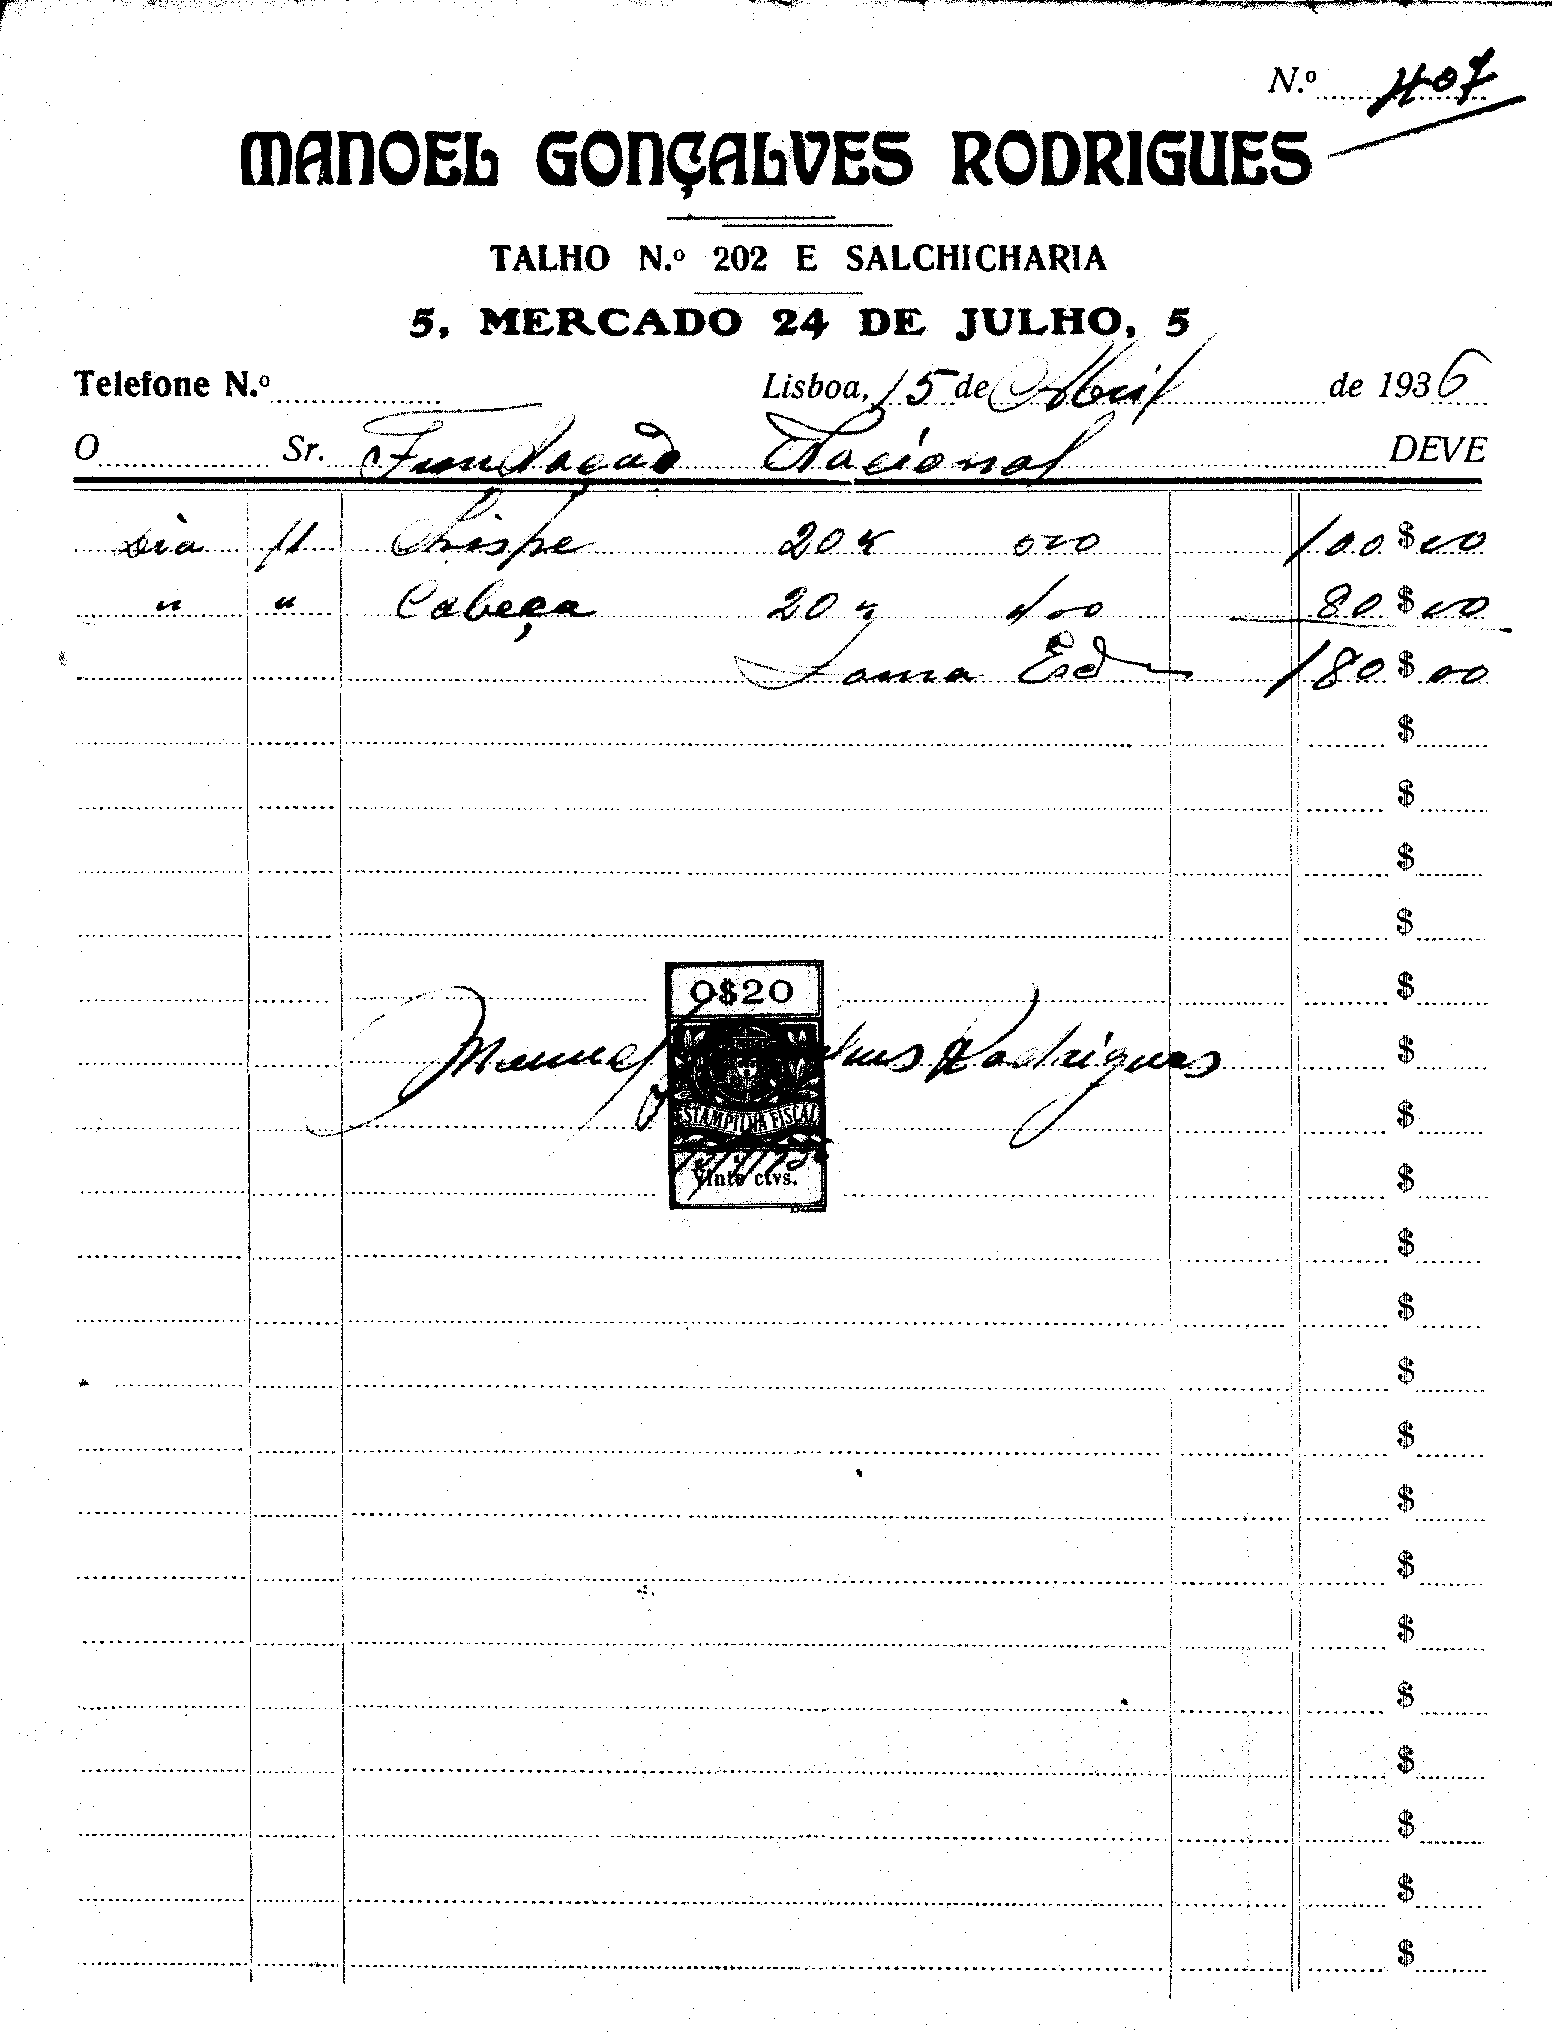 N.º 407
MANOEL GONÇALVES RODRIGUES
TALHO N.º 202 E SALCHICHARIA
5, MERCADO 24 DE JULHO, 5
Telefone N.º Lisboa, 15 de Abril de 1936
O Sr. Fundação Nacional DEVE
Dia 11 Chispe 20 K 500 100$00
" " Cabeça 20 " 400 80$00
Soma Ed 180$00
$
$
$
$
0$20
$
Manuel Rodrigues
$
ESTAMPILHA FISCAL
$
Vinte ctvs.
$
$
$
$
$
$
$
$
$
$
$
$
$